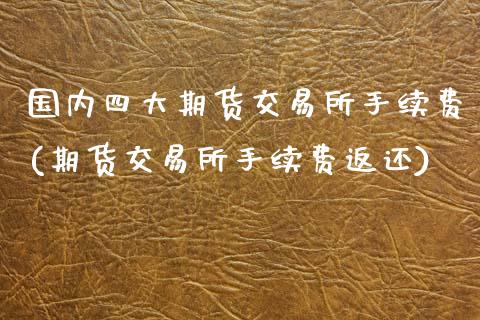 国内四大期货交易所手续费
(期货交易所手续费返还)